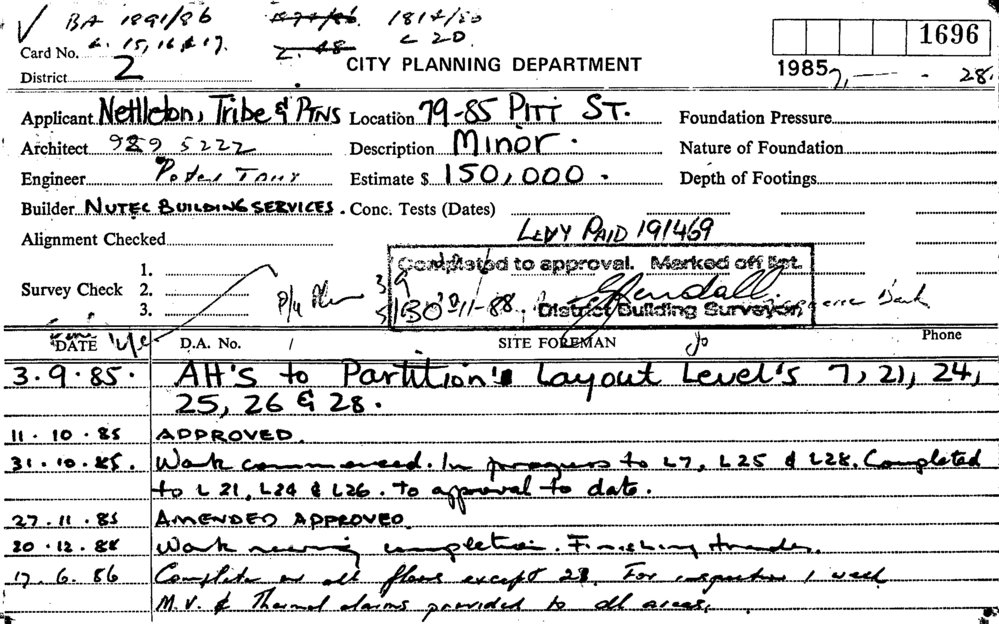 BA 1891/86 1814/80
L. 15, 16 & 17. L 20
1696
Card No.
District 2
CITY PLANNING DEPARTMENT
1985 28.
Applicant Nettleton, Tribe & Ptns Location 79-85 PITT ST. Foundation Pressure
Architect 929 5222 Description Minor. Nature of Foundation
Engineer Estimate $ 150,000. Depth of Footings
Builder NUTEC BUILDING SERVICES. Conc. Tests (Dates)
Alignment Checked LEVY PAID 191469
Completed to approval. Marked off list.
Survey Check 1.
2.
3.
11-88
District Building Surveyor
DATE D.A. No. SITE FOREMAN Phone
3.9.85. AH'S to Partition's Layout Level's 7, 21, 24,
25, 26 & 28.
11.10.85 APPROVED.
31.10.85. Work commenced. In progress to L7, L25 & L28. Completed
to L 21, L24 & L26. To approval to date.
27.11.85 AMENDED APPROVED.
Work nearing completion. Finishing trades.
17.6.86 Complete on all floors except 28. For inspection 1 week
M.V. & Thermal alarms provided to all areas.